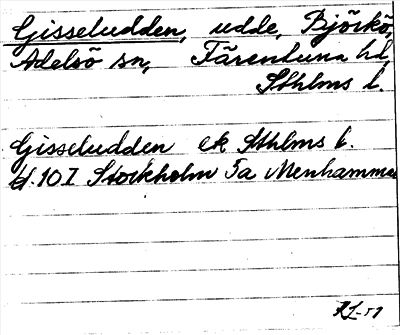 Gisseludden, udde, Björkö,
Adelsö sn, Färentuna hd,
Sthlms l.
Gisseludden ek Sthlms l.
bl. 10 I Stockholm 5a Menhammar